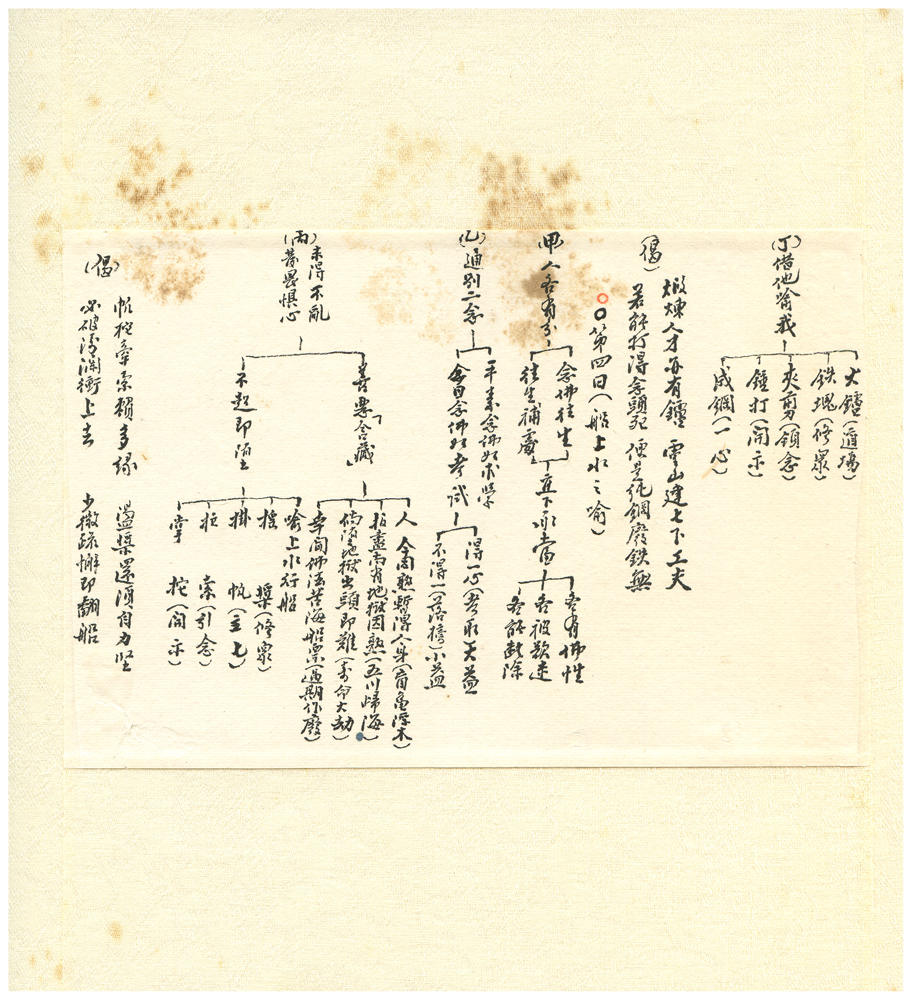 (丁)借他喻我
火鑪(道場)
鉄塊(修眾)
夾剪(領念)
鎚打(開示)
成鋼(一心)
(偈)
煅煉人才亦有鑪 雪山建七下工夫
若能打得念頭死 便是純鋼廢鉄無
〇第四日(船上水之喻)
(甲)人各有分
念佛往生
往生補處
直下承當
各有佛性
各被歎迷
各能斷除
(乙)通別二念
平素念佛如求學
今日念佛如考試
得一心(考取)大益
不得一(落榜)小益
(丙)未得不亂
當畏懼心
善惡含藏
人
身(盲龜浮木)
指盡
地獄因熟(五川歸海)
倘墮地獄出頭即難(壽命大劫)
幸聞佛法苦海船票(過期作廢)
不起即陷
喻上水行船
搖 槳(修眾)
掛 帆(主七)
拉 索(引念)
掌 柁(開示)
(偈)
帆柁牽索賴多緣 盪槳還須自力堅
必破清瀾衝上去 少微疏懈即翻船